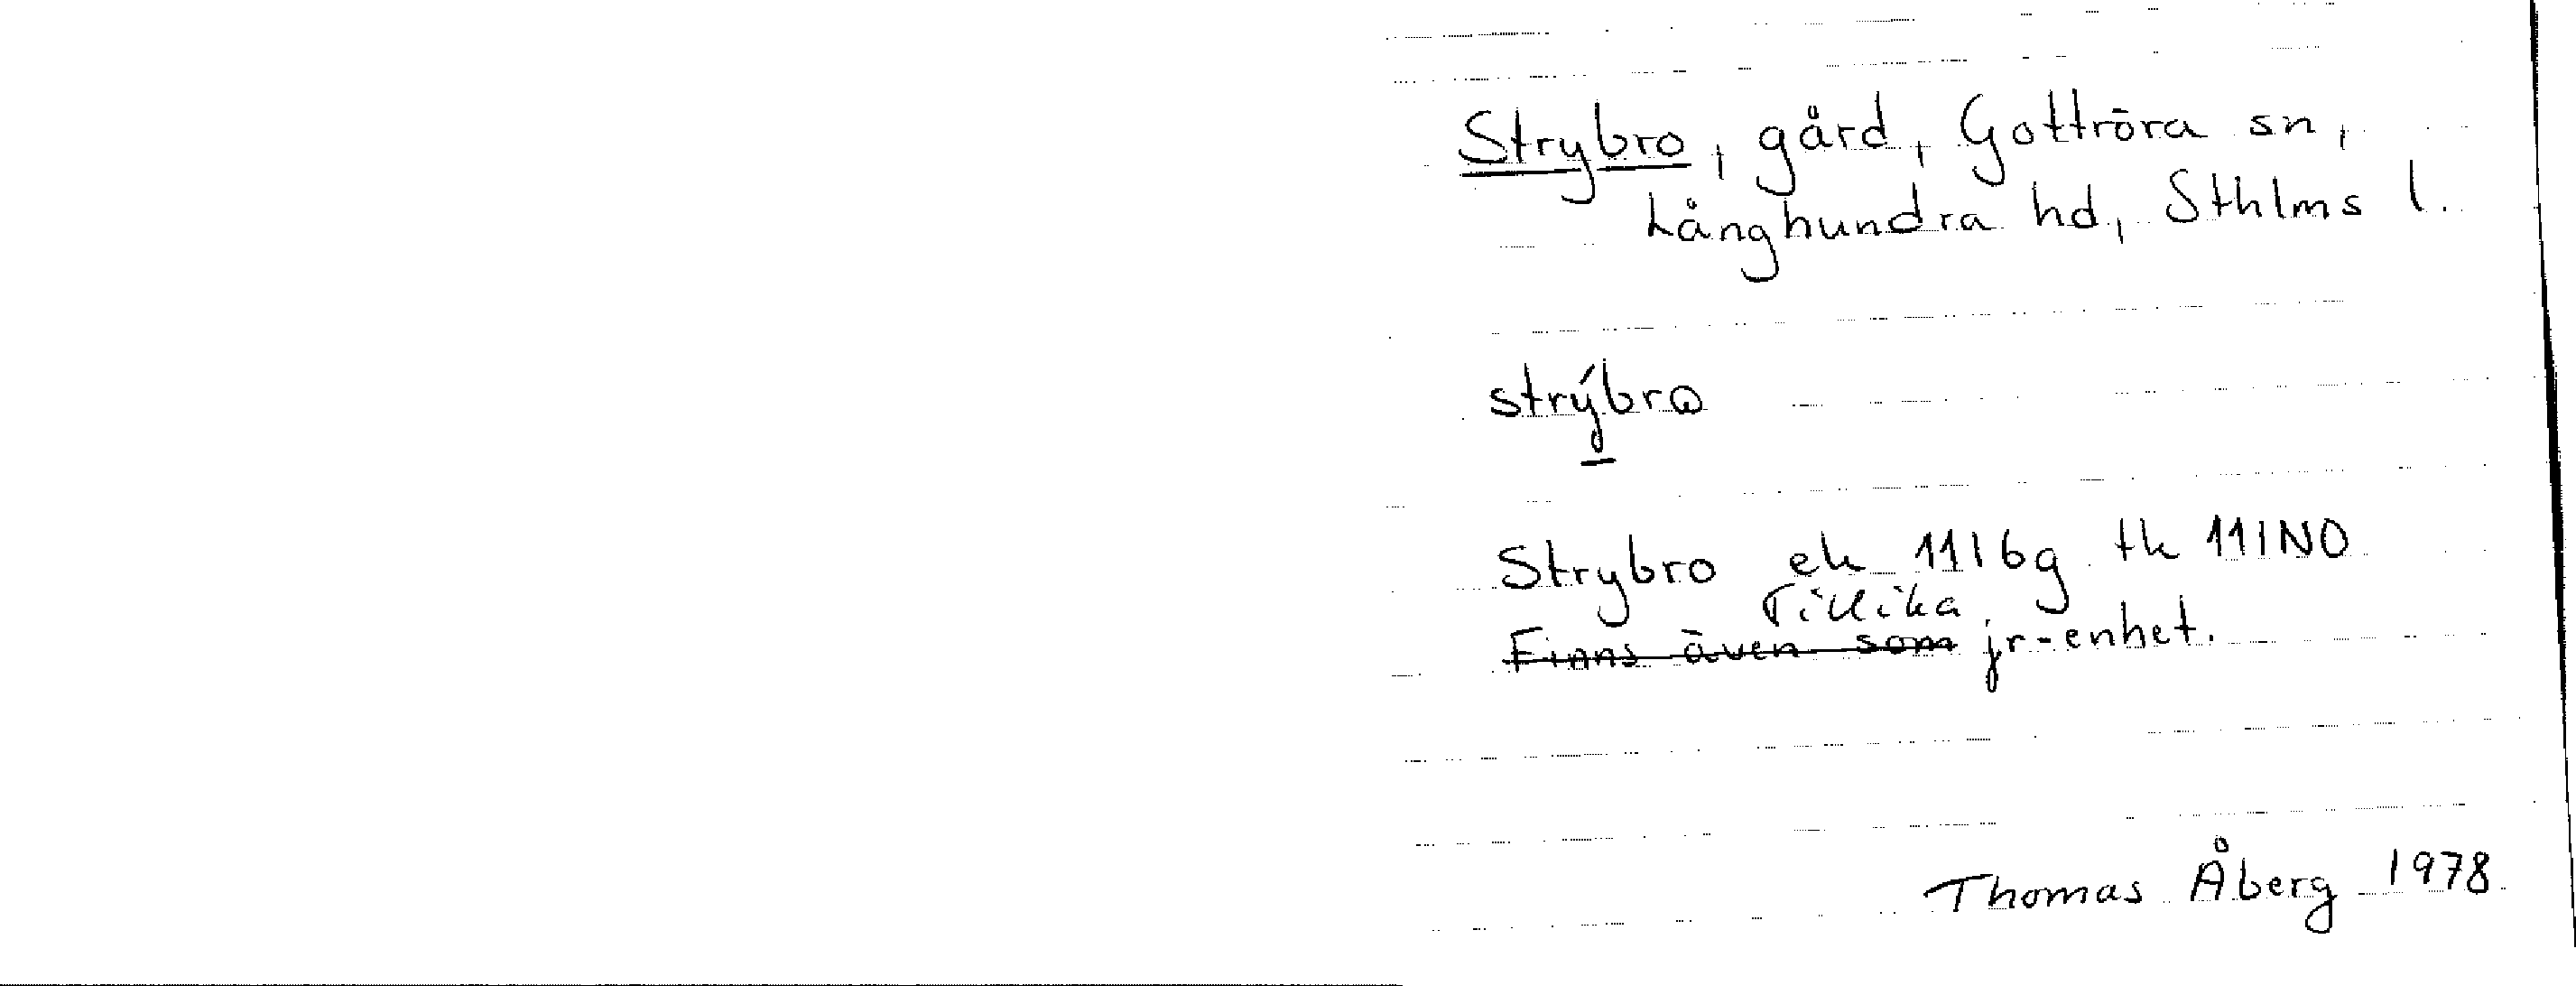 Strybro, gård, Gottröra sn,
Långhundra hd, Sthlms l.
strýbro
Strybro ek 11I6g tk 11INO
Tillika
Finns även som jr-enhet.
Thomas Åberg 1978